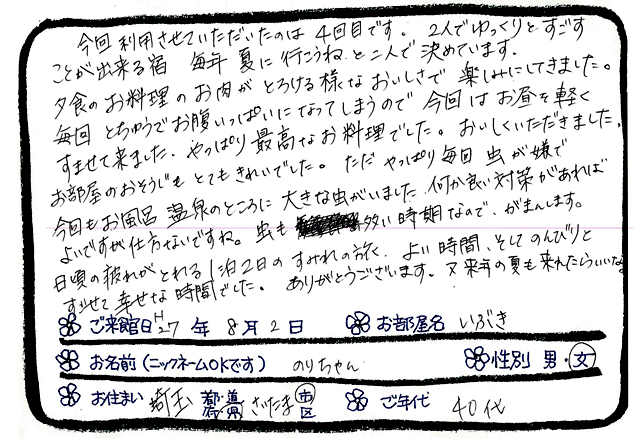 今回利用させていただいたのは4回目です。2人でゆっくりとすごす
ことが出来る宿 毎年夏に行こうねと二人で決めています。
夕食のお料理のお肉がとろける様なおいしさで楽しみにしてきました。
毎回とちゅうでお腹いっぱいになってしまうので今回はお昼を軽く
すませて来ました。やっぱり最高なお料理でした。おいしくいただきました。
お部屋のおそうじもとてもきれいでした。ただやっぱり毎回虫が嫌で
今回もお風呂温泉のところに大きな虫がいました。何か良い対策があれば
よいですが仕方ないですね。虫も多い時期なので、がまんします。
日頃の疲れがとれる1泊2日のすみれの旅、よい時間、そしてのんびりと
すごせて幸せな時間でした。ありがとうございます。又来年の夏も来れたらいいな。
ご来館日 H27年 8月 2日 お部屋名 いぶき
お名前(ニックネームOKです) のりちゃん 性別 男・女
お住まい 埼玉 都・道・府・県 さいたま 市・区 ご年代 40代